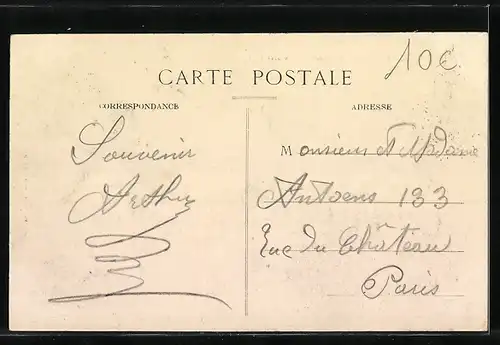 10€
CARTE POSTALE
CORRESPONDANCE
ADRESSE
Souvenir
Arthur
Monsieur et Madame
Antoens 133
Rue du Château
Paris